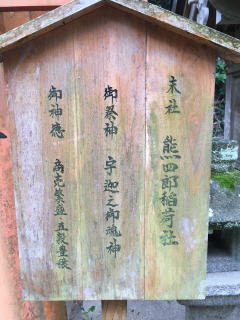 末社 熊四郎稲荷社
御祭神 宇迦之御魂神
御神徳 商売繁盛・五穀豊穣